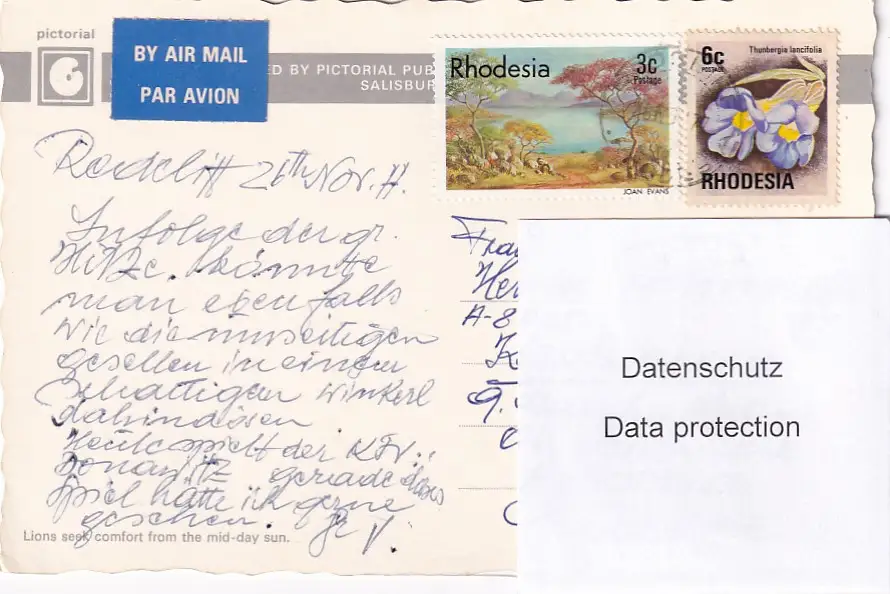 pictorial
BY AIR MAIL
PAR AVION
ED BY PICTORIAL PUB
SALISBUR
Rhodesia
3c
Postage
JOAN EVANS
6c
POSTAGE
Thunbergia lancifolia
RHODESIA
Redcliff 26th Nov. 77.
Infolge der gr.
Hitze, könnte
man ebenfalls
wie die umseitigen
gesellen in einem
schattigen Winkerl
dahindösen
Heute spielt der
Donawitz gerade dieses
Spiel hätte ich gerne
gesehen.
Lions seek comfort from the mid-day sun.
A-8
Datenschutz
Data protection